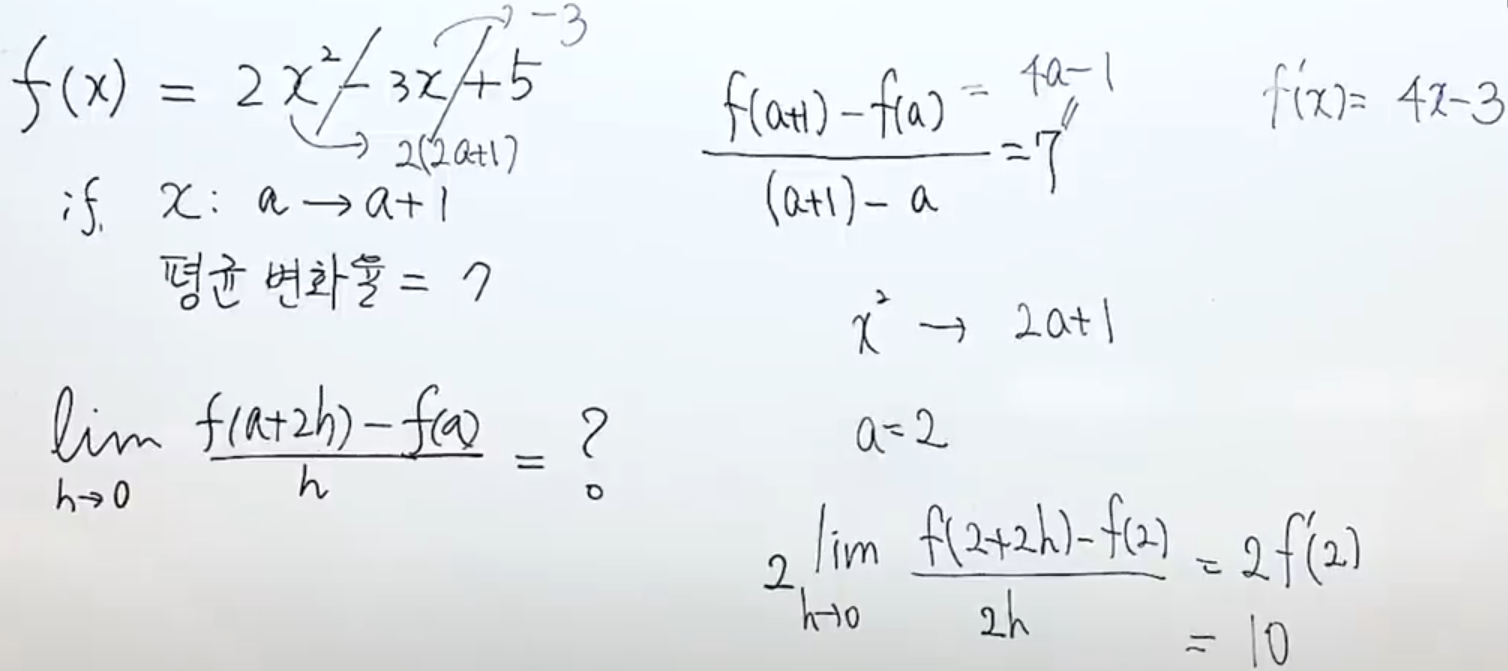 f(x) = 2x² - 3x + 5
-3
2(2a+1)
if. x: a → a+1
평균 변화율 = 7
lim h→0 f(a+2h) - f(a) / h = ?
f(a+1) - f(a) / (a+1) - a = 7
= 4a-1
f'(x) = 4x-3
x² → 2a+1
a=2
2 lim h→0 f(2+2h) - f(2) / 2h = 2f'(2)
= 10